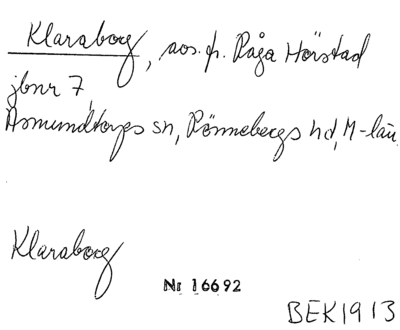 Klaraborg, avs. fr. Råga Hörstad
jbnr 7,
Asmundtorps sn, Rönnebergs hd, M-län.
Klaraborg
Nr 16692
BEK1913